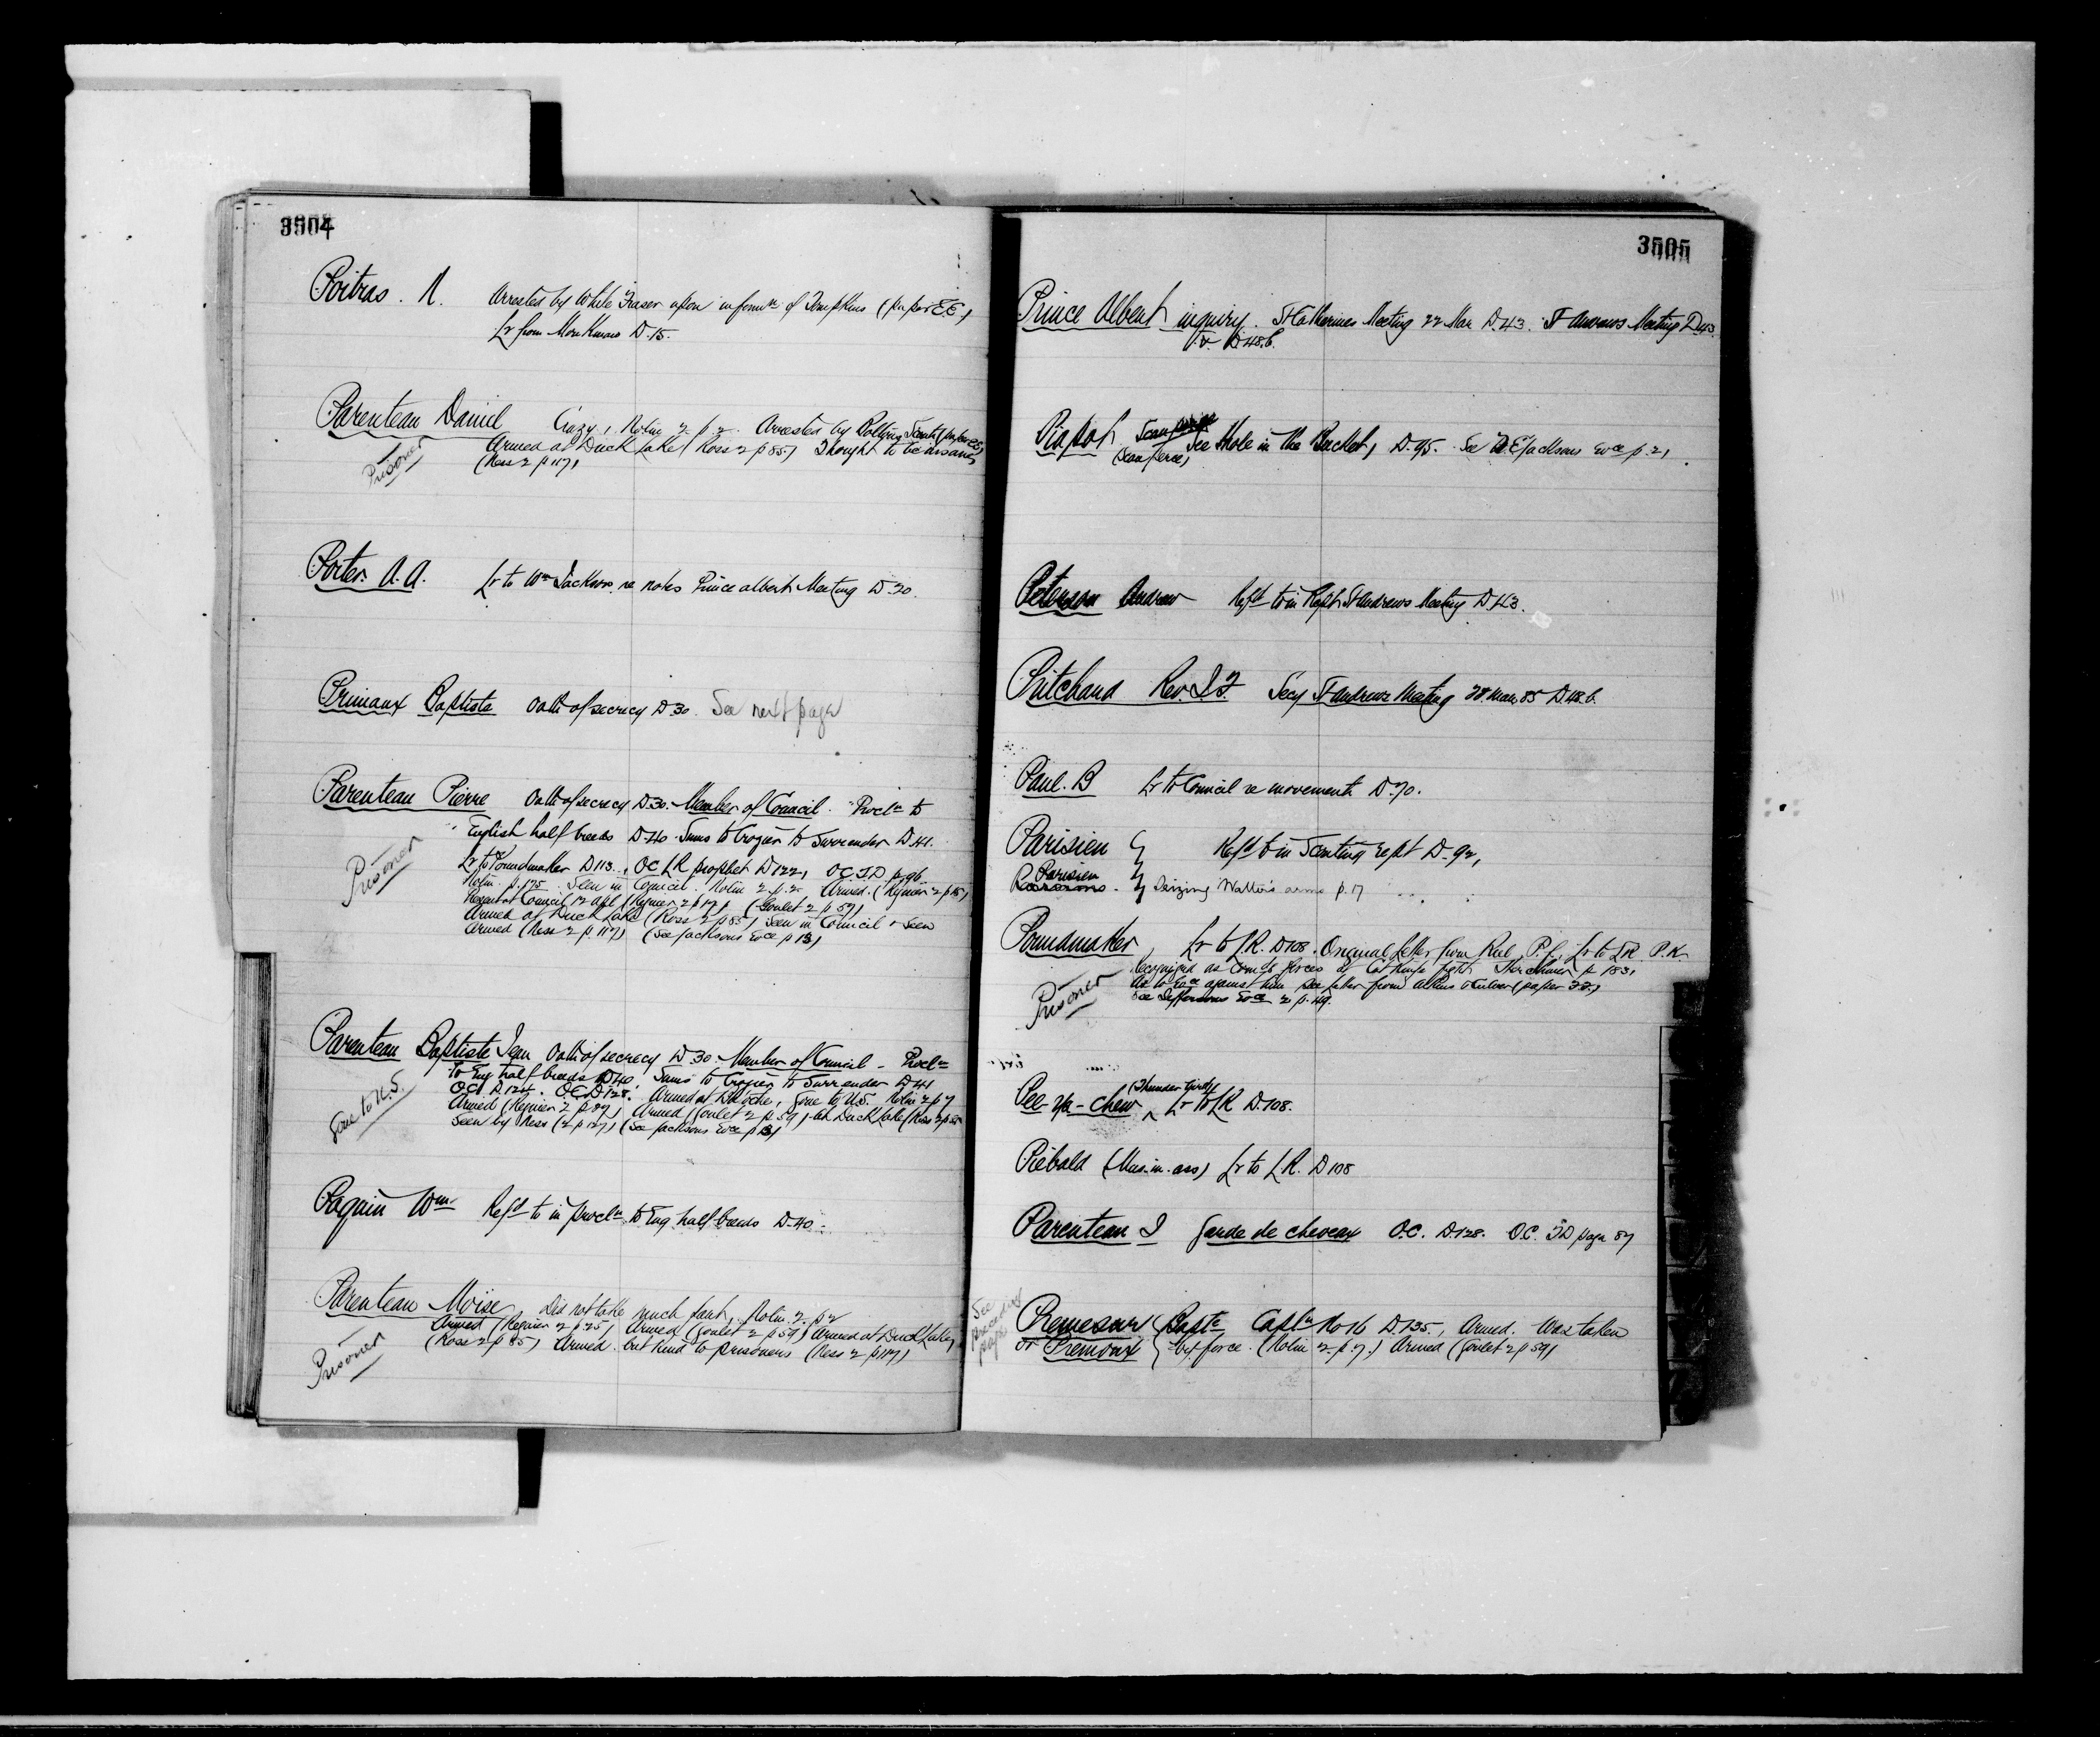 3504
Poitras. N. Arrested by White Fraser upon informn of Tompkins (paper E.E.)
Lr from Monkman D.15.
Parenteau Daniel Crazy, Nolin 2 p.2. Arrested by Boltons Scouts
Armed at Duck Lake (Ross 2 p 85) Thought to be insane
(Ness 2 p 117)
Prisoner
Porter. A.A. Lr to Wm Jackson re notes Prince Albert Meeting D.20.
Primaux Baptiste Oath of secrecy D.30. See next page
Parenteau Pierre Oath of secrecy D.30. Member of Council. Procln to
English half breeds D.40. Sums to Crozier to Surrender D.41.
Prisoner
Lr to Poundmaker D.113., OC LR prophet D.122, O.C. J.D. p.96
Nolin p.125. Seen in Council. Nolin 2 p.2. Armed.
Council 12 apl (Goulet 2 p 59)
Armed at Duck Lake (Ross 2 p 85) Seen in Council & Seen
Armed (Ness 2 p.117) (See Jacksons Evce p 13)
Parenteau Baptiste Jean Oath of secrecy D.30. Member of Council - Procln
To Eng half breeds D40. Sums to Crozier to Surrender D.41
Gone to U.S.
O.C. D.124. O.C. D.128. Armed at Batoche, Gone to U.S. Nolin 2 p 7
Armed Armed (Goulet 2 p 59) at Duck Lake (Ross 2 p 85
Seen by Ness (2 p 127) (See Jacksons Evce p 13)
Paquin Wm Refd to in procln to Eng half breeds D.40.
Parenteau Moise Did not take much part, Nolin 2. p 2
Armed Armed (Goulet 2 p 59) Armed at Duck Lake,
(Ross 2 p 85) Armed but kind to prisoners (Ness 2 p 117)
Prisoner
3505
Prince Albert inquiry. St Catherines Meeting 22 Mar D.43. St Andrews Meeting D.43.
D.48.b.
Piapot See Hole in the Bucket, D.95. See Jacksons Evce p.21
Peterson Andrew Refd to in Rept St Andrews Meeting D.43.
Pritchard Rev. Secy St Andrews Meeting 28 Mar. 85 D.48.b.
Paul. B Lr to Council re movements D.70.
Parisien Refd to in Scouting rept D.92,
Parisien
Seizing Walters arms p.17
Poundmaker, Lr to L.R. D108. Original letter from Riel, Lr to L.R. P.K.
Recognized as Comdg forces at Cut Knife fight
As to Evce against him see letter from (paper
See Jeffersons Evce 2 p.49.
Prisoner
(Thunder
Pee-ya-chew Lr to LR D.108.
Piebald Lr to L.R. D108
Parenteau J Garde de cheveax O.C. D.128. O.C. J.D page 87
See
preceding
page
Bapte Captn No 16 D.135., Armed. Was taken
or Premoux by force. (Nolin 2 p.7.) Armed (Goulet 2 p 59)